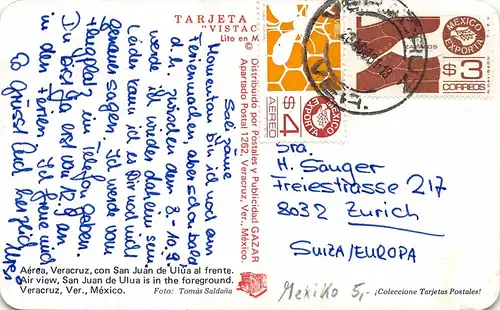 TARJETA
"VISTAC
Lito en M
Salü zäme
Momentan bin ich noch am
Ferienmachen, aber schon bald
d.h. zwischen dem 8.-10.9.
werde ich wieder daheim sein
Leider kann ich es Dir noch nicht
genau sagen. Ich werde vom
Flugplatz ein Telefon geben.
Du bist ja erst vom 12.9 an
in den Ferien. Ich freue mich
So Gruss und herzlich
Distribuido por Postales y Publicidad GAZAR
Apartado Postal 1262, Veracruz, Ver., México.
$4
AEREO
MEXICO
EXPORTA
MEXICO
EXPORTA
$3
CORREOS
Sra.
H. Sauger
Freiestrasse 217
8032 Zurich
SUIZA/EUROPA
Aérea, Veracruz, con San Juan de Ulúa al frente.
Air view, San Juan de Ulua is in the foreground.
Veracruz, Ver., México.
Foto: Tomás Saldaña
Mexiko 5,-
¡Coleccione Tarjetas Postales!